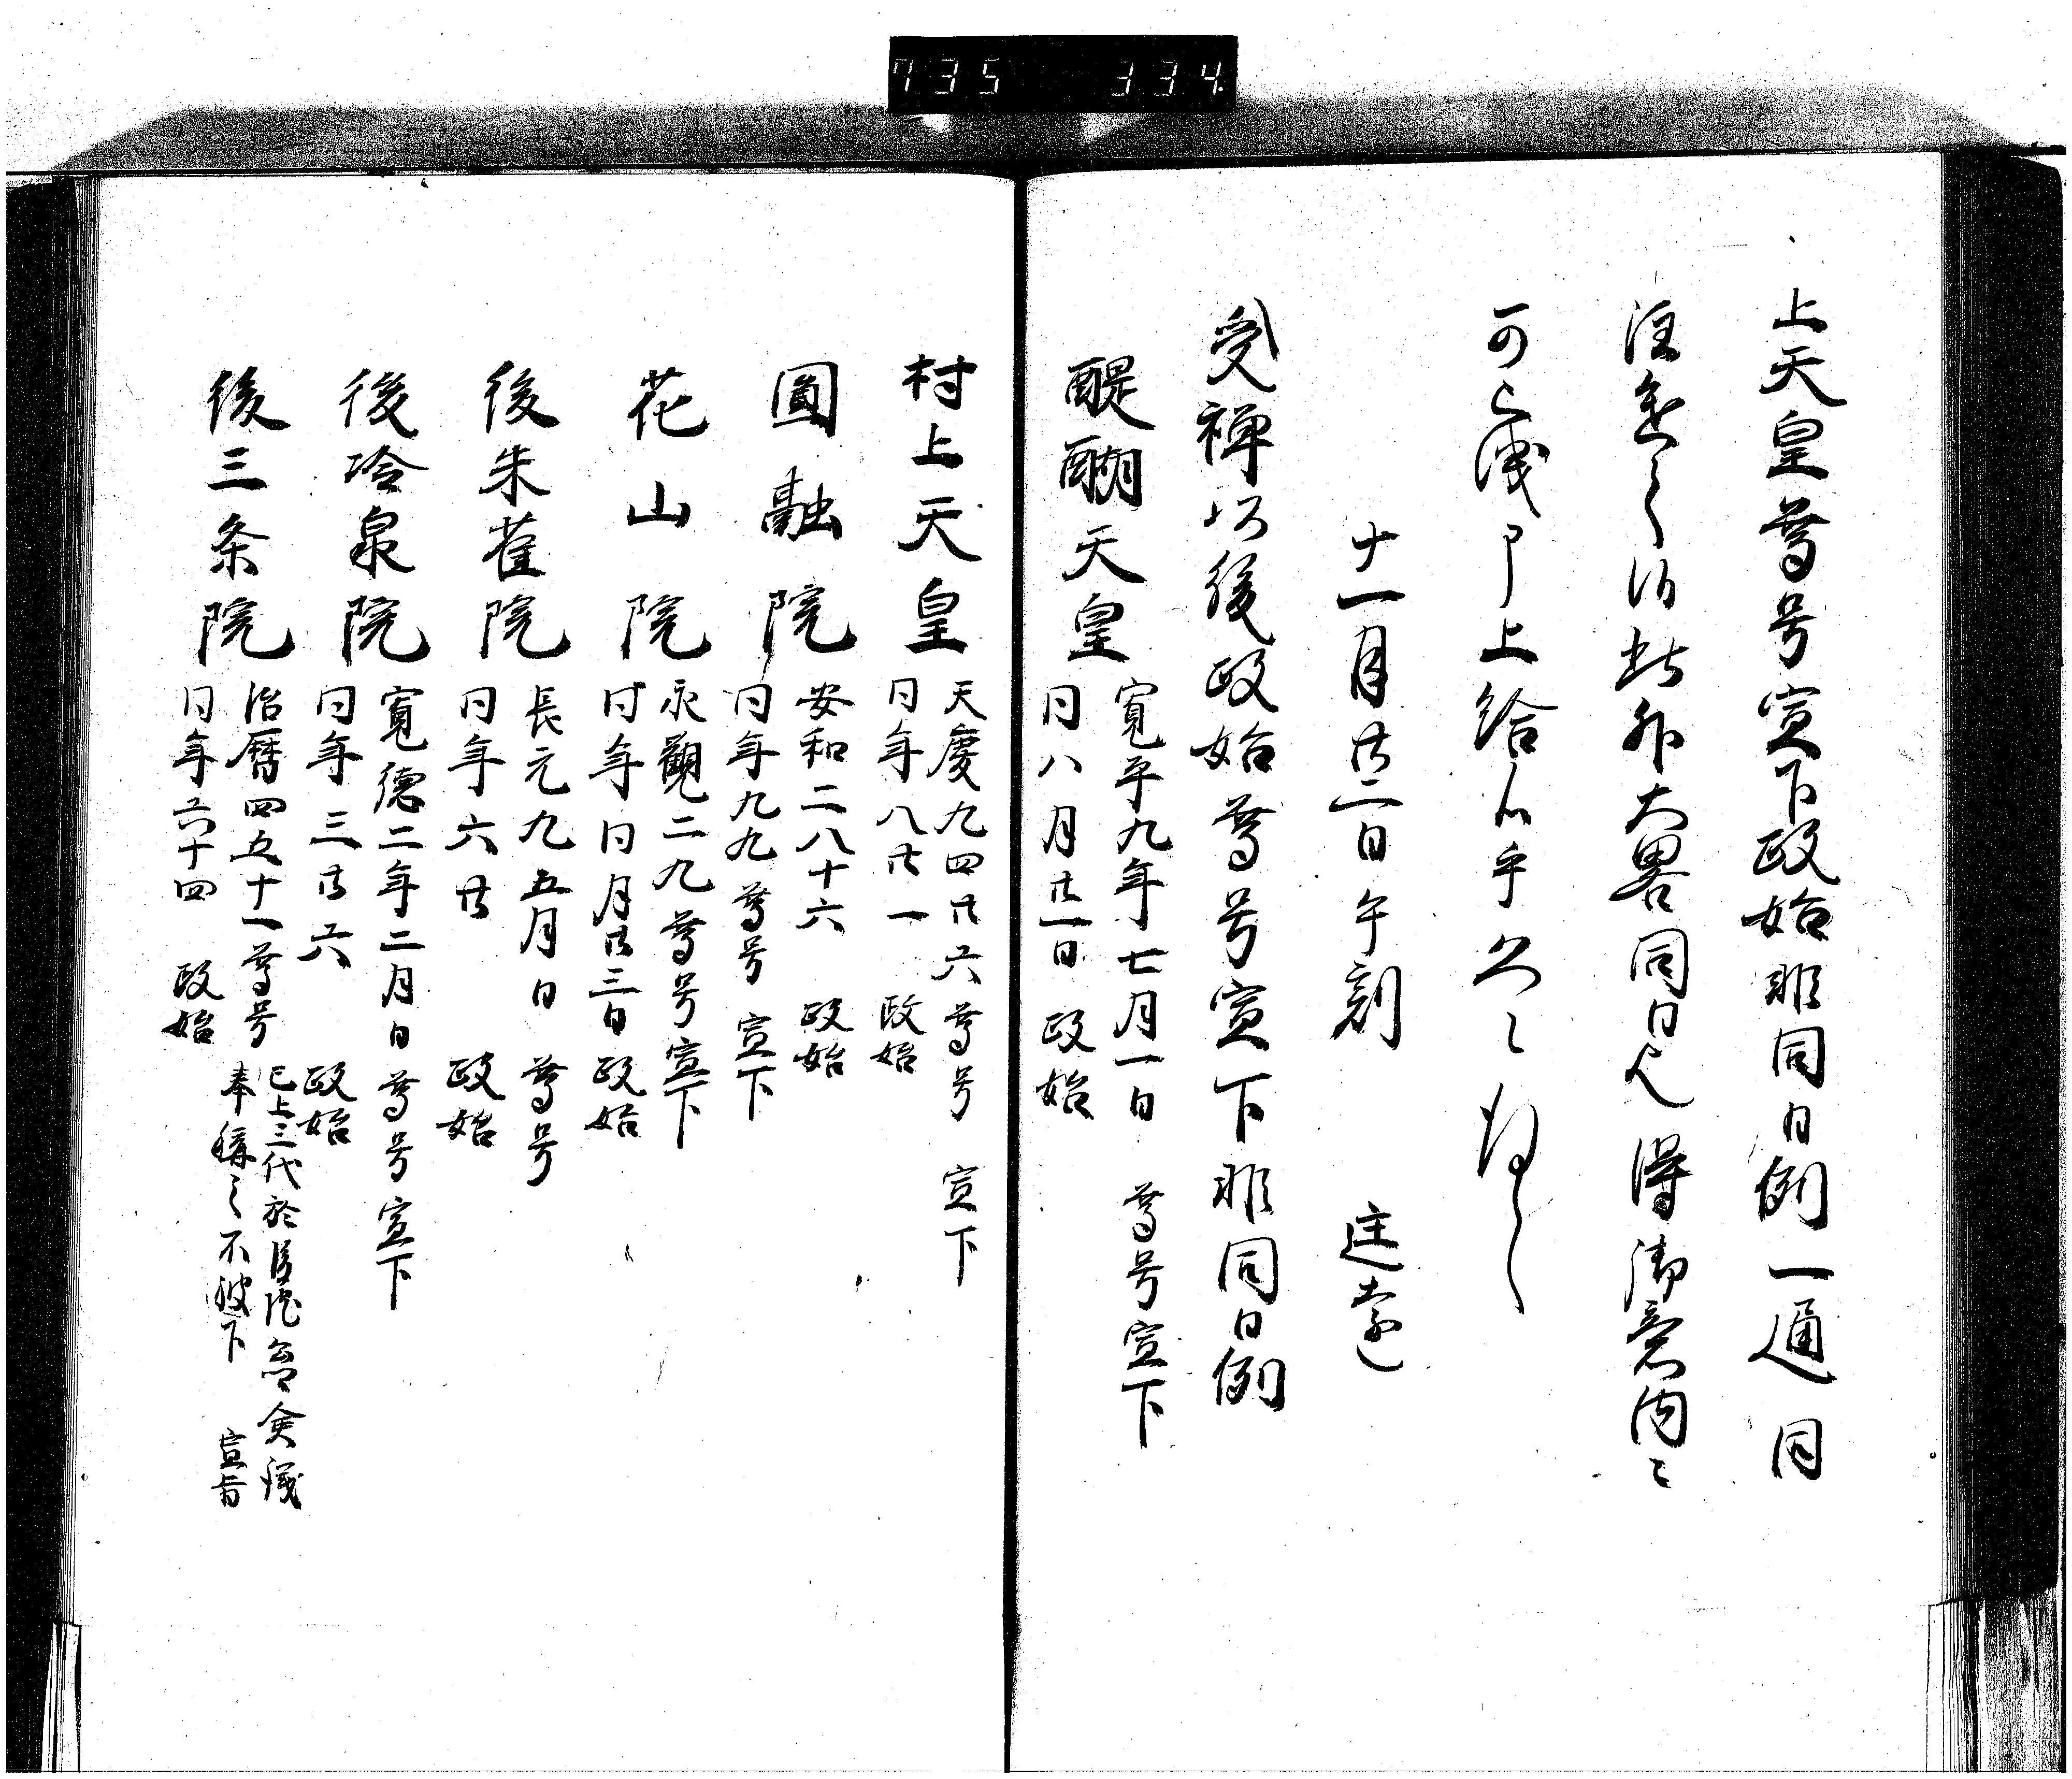 735 334
上天皇尊号宣下政始非同日例一通同
注進之候此外大畧同日也得御意内々
可上給候
十一月廿二日午刻
受禅以後政始尊号宣下非同日例
醍醐天皇 寛平九年七月一日 尊号宣下
同八月廿一日 政始
村上天皇 天慶九四廿六尊号 宣下
同年八廿一 政始
圓融院 安和二八十六 政始
同年九九尊号 宣下
花山院 永觀二九尊号宣下
同年同月廿三日 政始
後朱雀院 長元九五月日 尊号
同年六廿 政始
後冷泉院 寛徳二年二月日尊号宣下
同年三廿六 政始
後三条院 治曆四五十一尊号
同年六十四 政始
已上三代於 令僉議
奉稱之不被下 宣旨